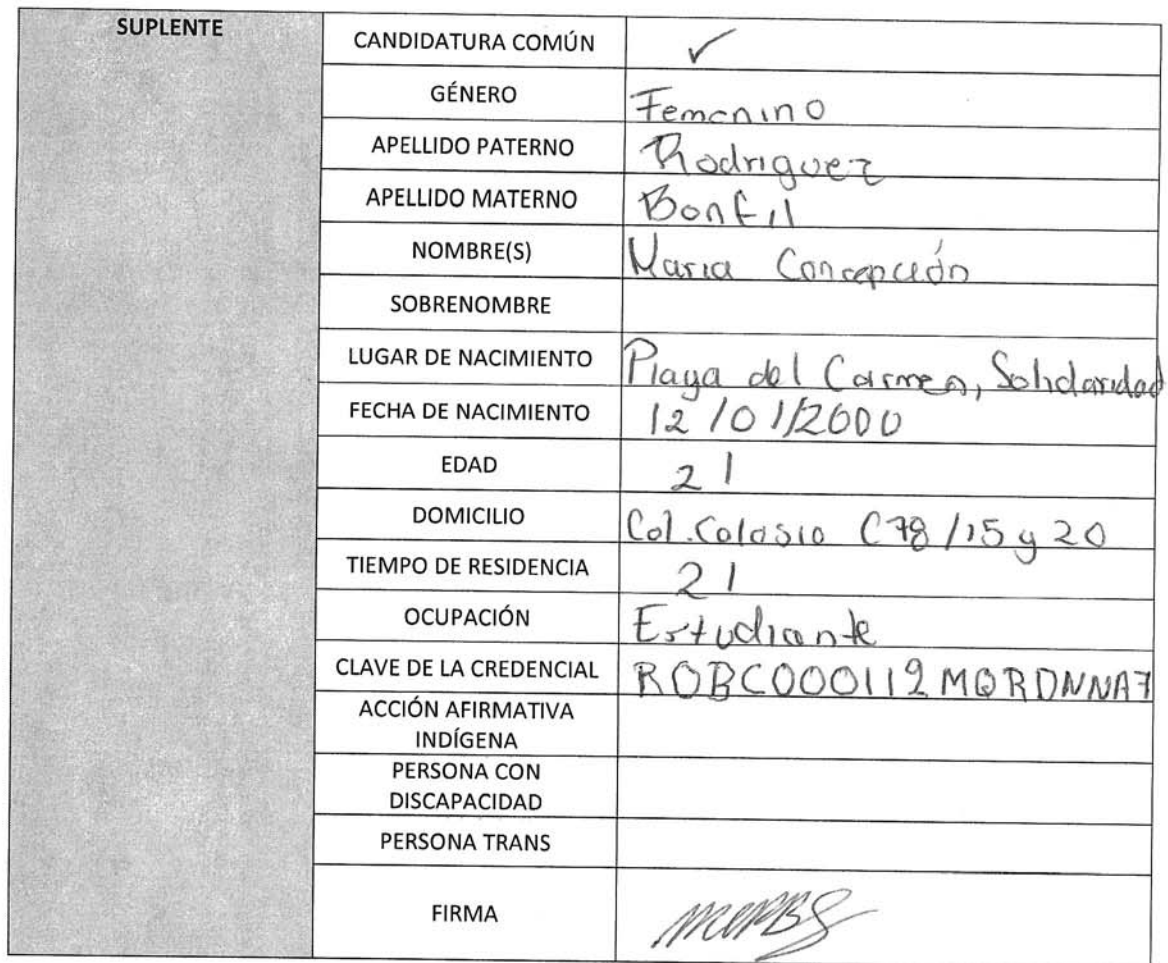 SUPLENTE
CANDIDATURA COMÚN ✓
GÉNERO Femenino
APELLIDO PATERNO Rodriguez
APELLIDO MATERNO Bonfil
NOMBRE(S) Maria Concepción
SOBRENOMBRE
LUGAR DE NACIMIENTO Playa del Carmen, Solidaridad
FECHA DE NACIMIENTO 12/01/2000
EDAD 21
DOMICILIO Col. Colosio C78/15 y 20
TIEMPO DE RESIDENCIA 21
OCUPACIÓN Estudiante
CLAVE DE LA CREDENCIAL ROBC000112MQRDNNA7
ACCIÓN AFIRMATIVA
INDÍGENA
PERSONA CON
DISCAPACIDAD
PERSONA TRANS
FIRMA